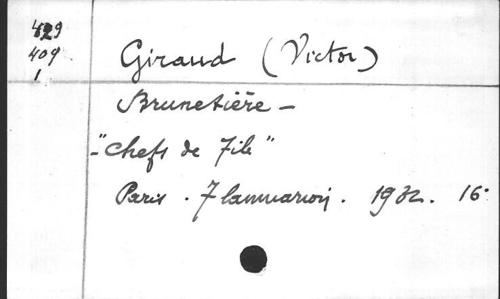 429
409
1
Giraud (Victor)
Brunetière -
- "Chefs de File"
Paris . Flammarion . 1932. 16°